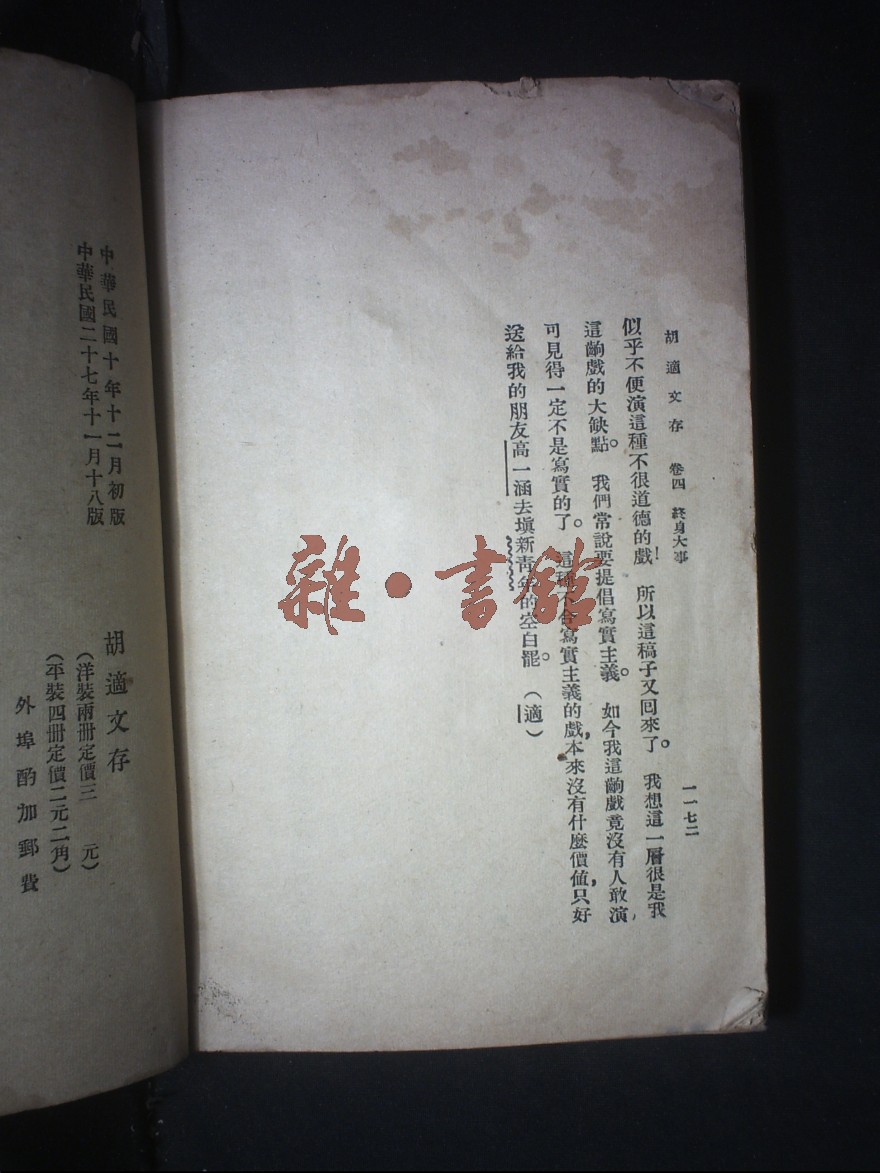 胡適文存　卷四　終身大事　一一七二
似乎不便演這種不很道德的戲！所以這稿子又回來了。我想這一層很是我
這齣戲的大缺點。我們常說要提倡寫實主義。如今我這齣戲竟沒有人敢演，
可見得一定不是寫實的了。這種不合寫實主義的戲，本來沒有什麼價值，只好
送給我的朋友高一涵去塡新靑年的空白罷。（適）
中華民國十年十二月初版
中華民國二十七年十一月十八版
胡適文存
（洋裝兩冊定價三　元）
（平裝四冊定價二元二角）
外埠酌加郵費
雜·書館